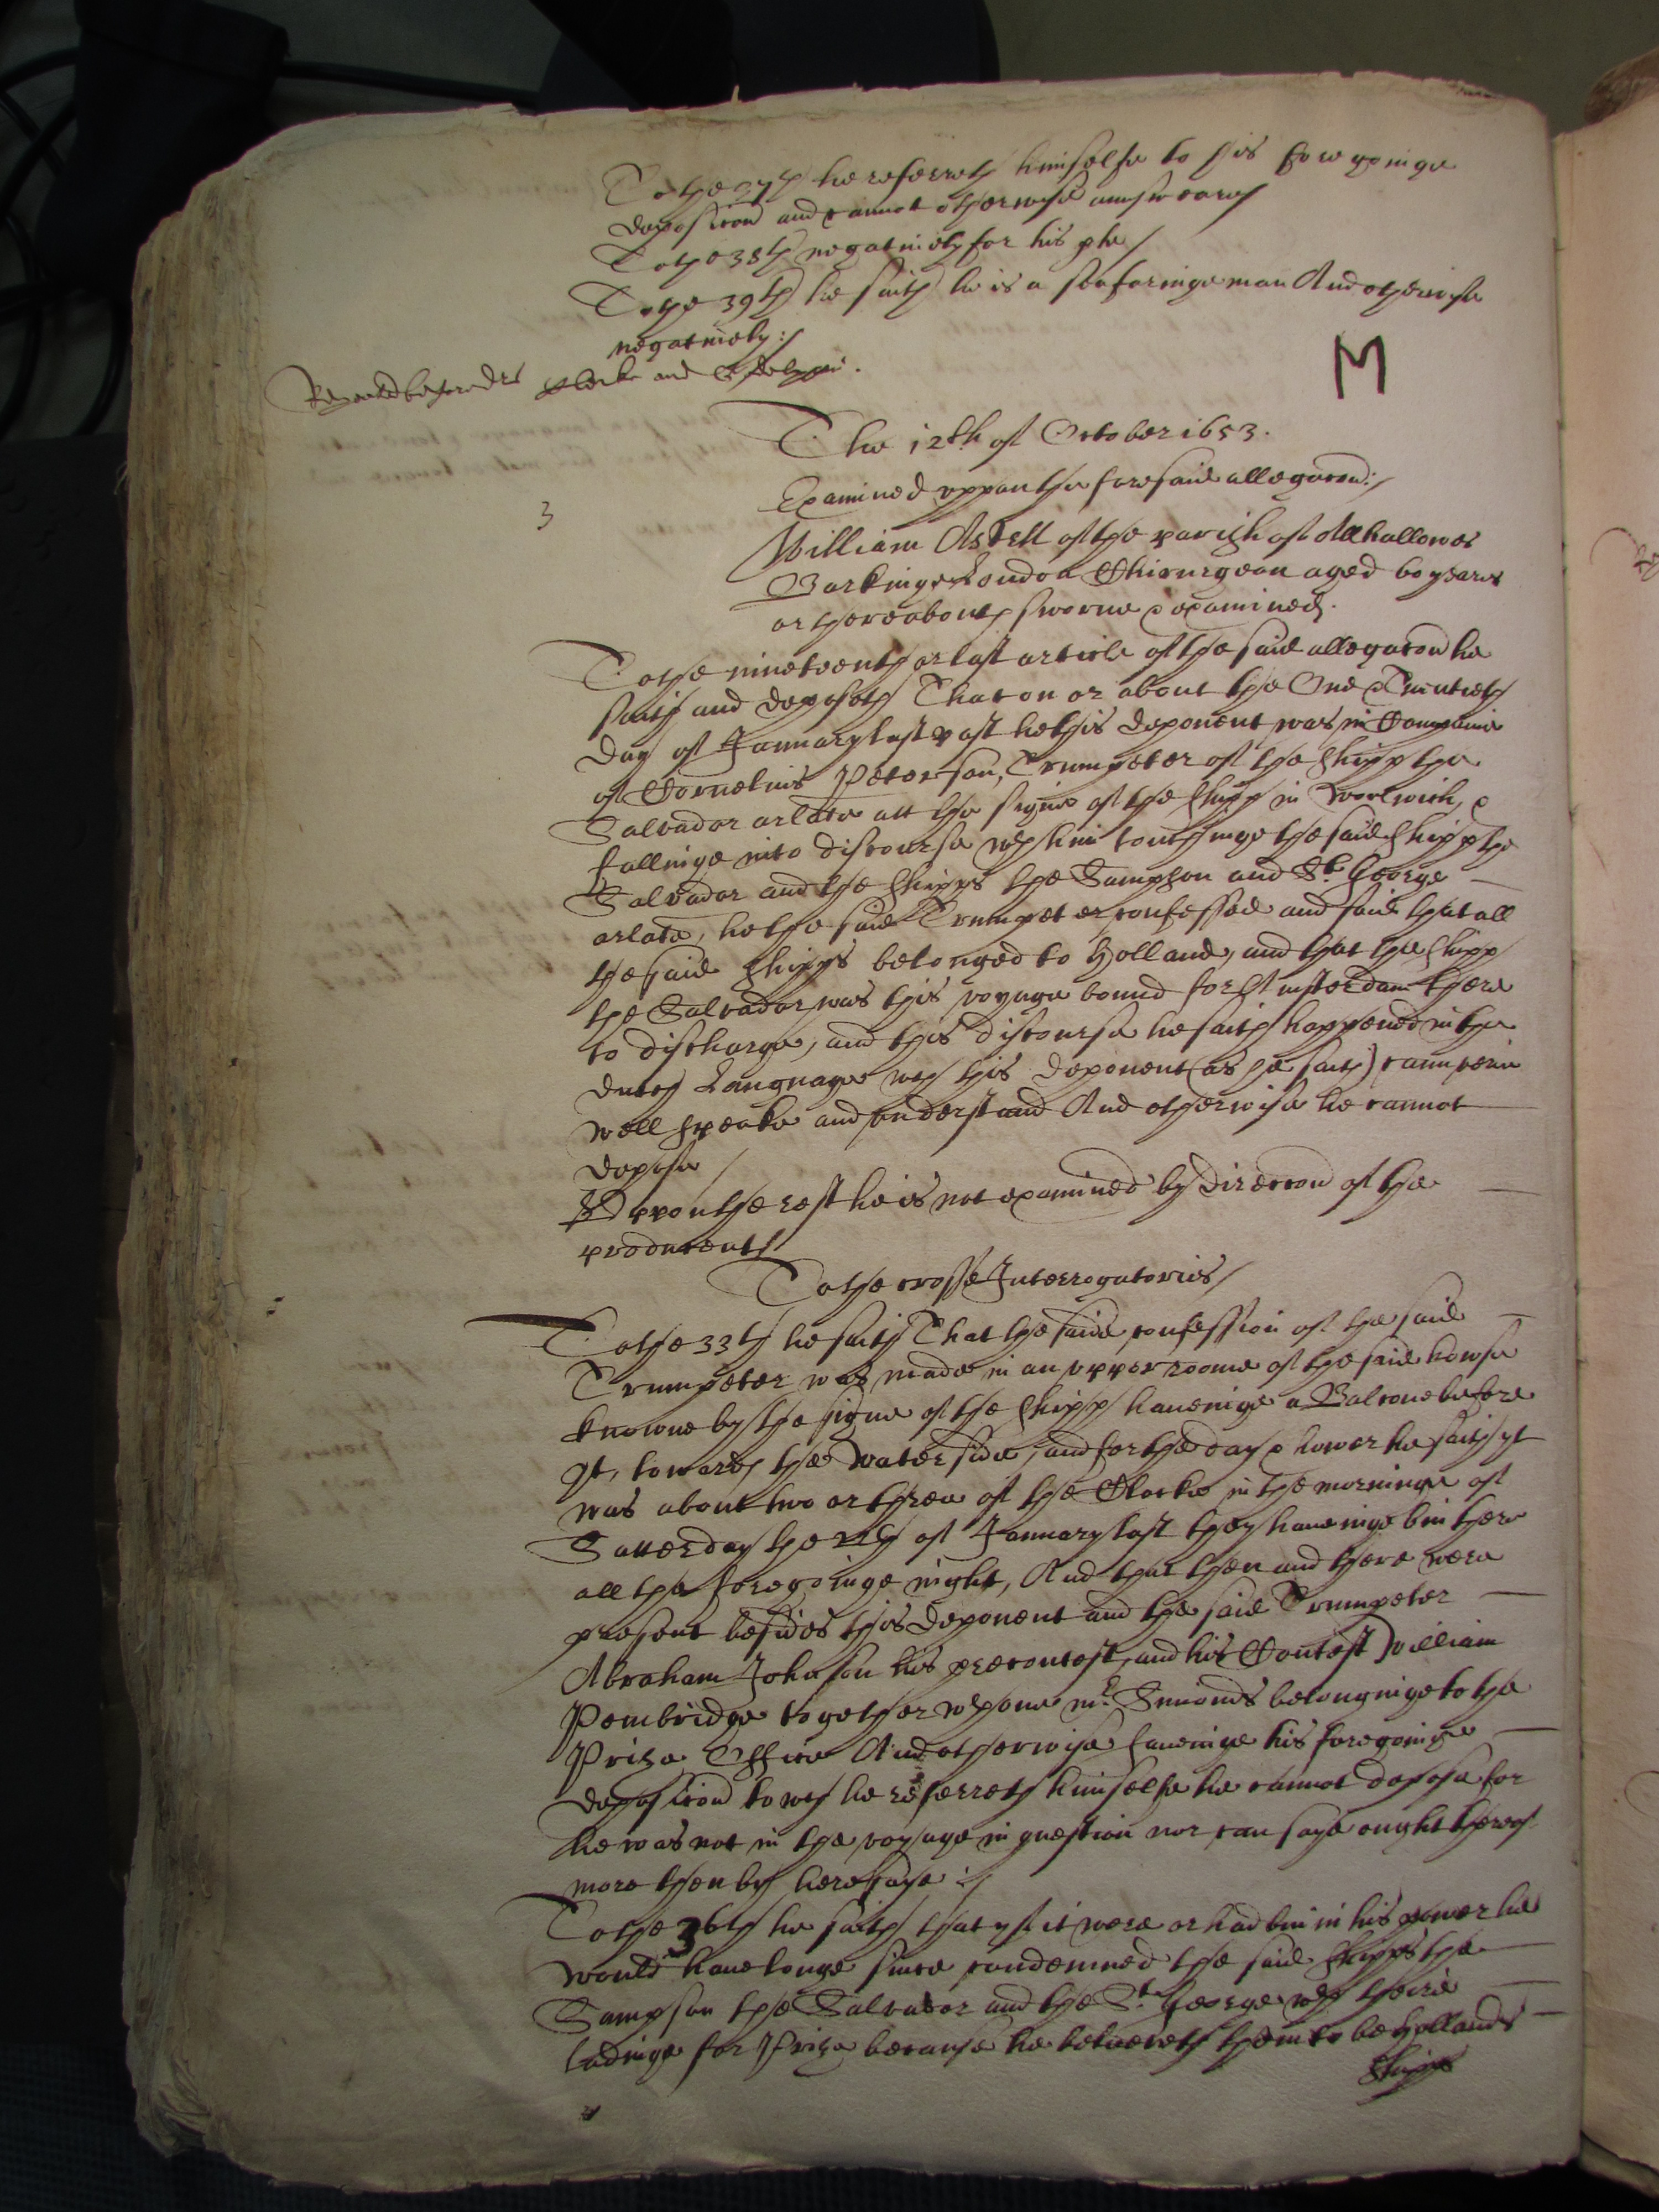 To the 37th he referreth himselfe to his foregoinge
deposicon and cannot otherwise answeare/
To the 38th negatively for his pte/
To the 39th he saith he is a seafaringe man And otherwise
negatively:/
Repeated before drs Clerke and
M
The 12th of October 1653.
Examined uppon the foresaid allegacon:/
3
William Astell of the parish of Allhallowes
Barkinge London Chirurgeon aged 60 yeares
or thereabouts sworne & examined.
To the nineteenth or last article of the said allegacon he
saith and deposeth That on or about the One & Twentieth
day of January last past he this deponent was in Companie
of Cornelius Peterson, Trumpeter of the shipp the
Salvador arlate att the signe of the shipp in Woolwich, &
fallinge into discourse wth him touchinge the said shipp the
Salvador and the shipps the Sampson and St. George
arlate, he the said Trumpeter confessed and said that all
the said shipps belonged to Holland, and that the shipp
the Salvador was this voyage bound for Amsterdam there
to discharge, and this discourse he saith happened in the
dutch Language wch this deponent (as he saith) cann verie
well speake and understand And otherwise he cannot
depose/
Uppon the rest he is not examined by direccon of the
producent/
To the crosse Interrogatories/
To the 33th he saith That the said confession of the said
Trumpeter was made in an upper roome of the said howse
knowne by the signe of the shipp haveinge a Balcone before
yt, towards the water side, and for the day & hower he saith yt
was about two or three of the Clocke in the morninge of
Satterday the of January last they haveinge bin there
all the foregoinge night, And that then and there were
present besides this deponent and the said Trumpeter
Abraham Johnson his precontest, and his Contest William
Pembridge together wth one mr. Simonds belonginge to the
Prize Office And otherwise saveinge his foregoinge
deposicon to wch he referreth himselfe he cannot depose for
he was not in the voyage in question nor can saye ought thereof
more then by heresaye:/
To the 36th he saith that yf it were or had bin in his power he
would have longe since condemned the said shipps the
Sampson the Salvador and the St. George wth theire
ladinge for Prize because he beleeveth them to be Hollands
shipps